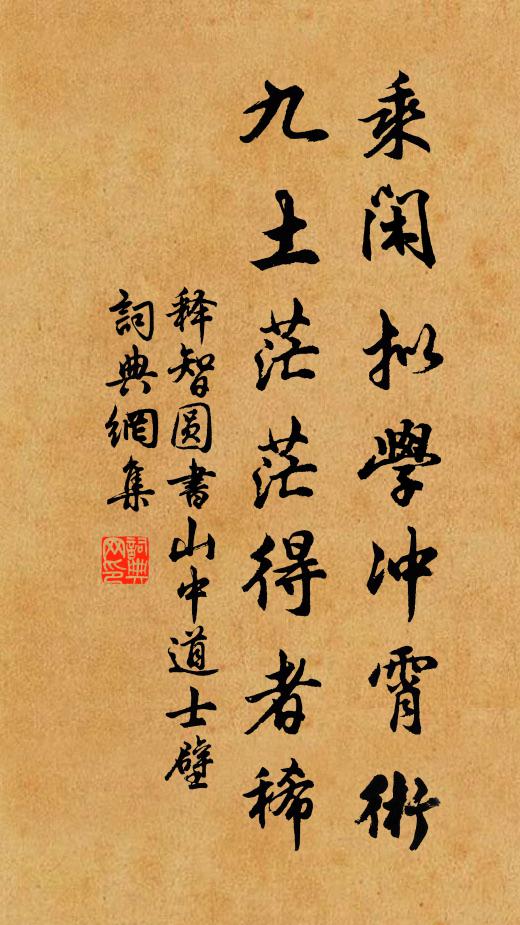 乘閑拟學冲霄術
九土茫茫得者稀
释智圆書山中道士壁
詞典網集
詞典网印